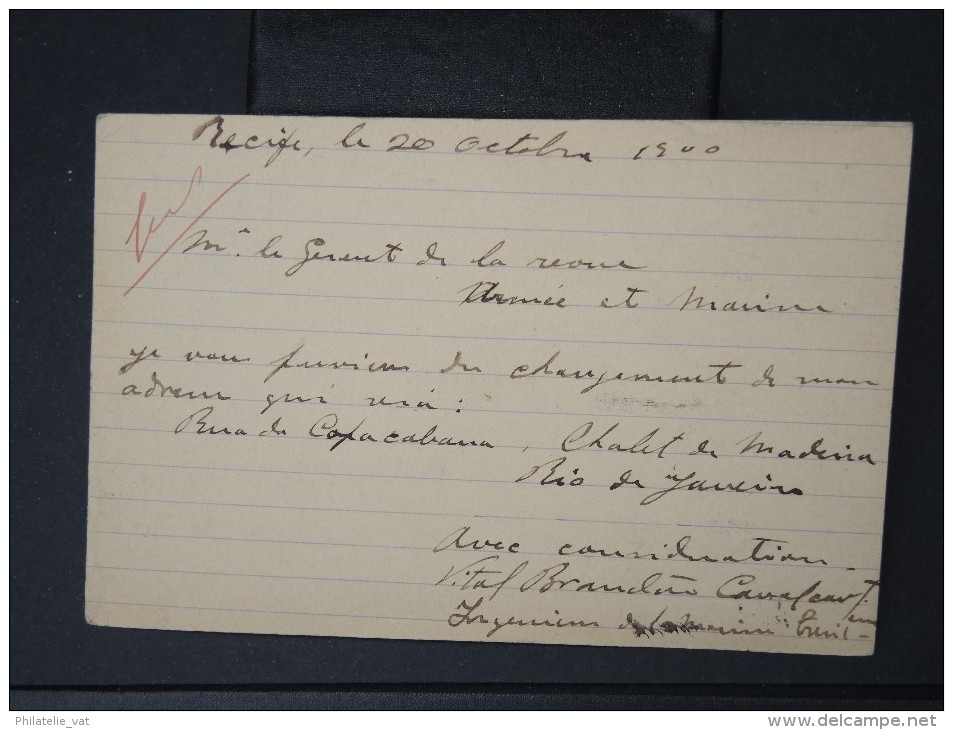 Recife, le 20 Octobre 1900
Mr. le Gerent de la revue
Armée et Marine
Je vous previens du changement de mon
adresse qui sera:
Rua da Copacabana, Chalet de Madeira
Rio de Janeiro
Avec consideration
Vital Brandão Cavalcanti
Ingenieur de la marine
Philatelie_vat
www.delcampe.net